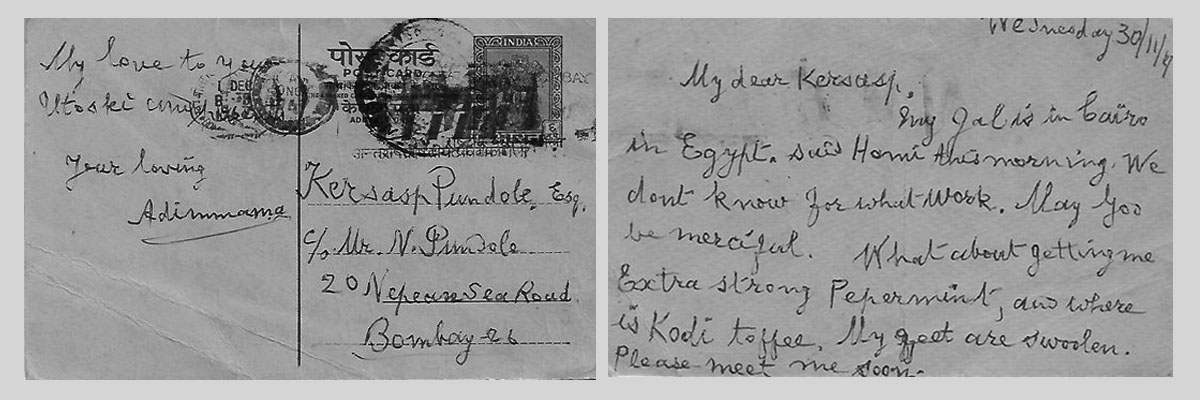 My love to you
Utoski and
Your loving
Adimmama
1 DEC
पोस्ट कार्ड
POST CARD
INDIA
Kersasp Pundole, Esq.
c/o Mr. N. Pundole
20 Nepean Sea Road
Bombay-26
Wednesday 30/11/
My dear Kersasp,
Jal is in Cairo
in Egypt. said Homi this morning. We
dont know for what work. May God
be merciful. What about getting me
Extra strong Pepermint, and where
is Kodi toffee. My feet are swoolen.
Please meet me soon.